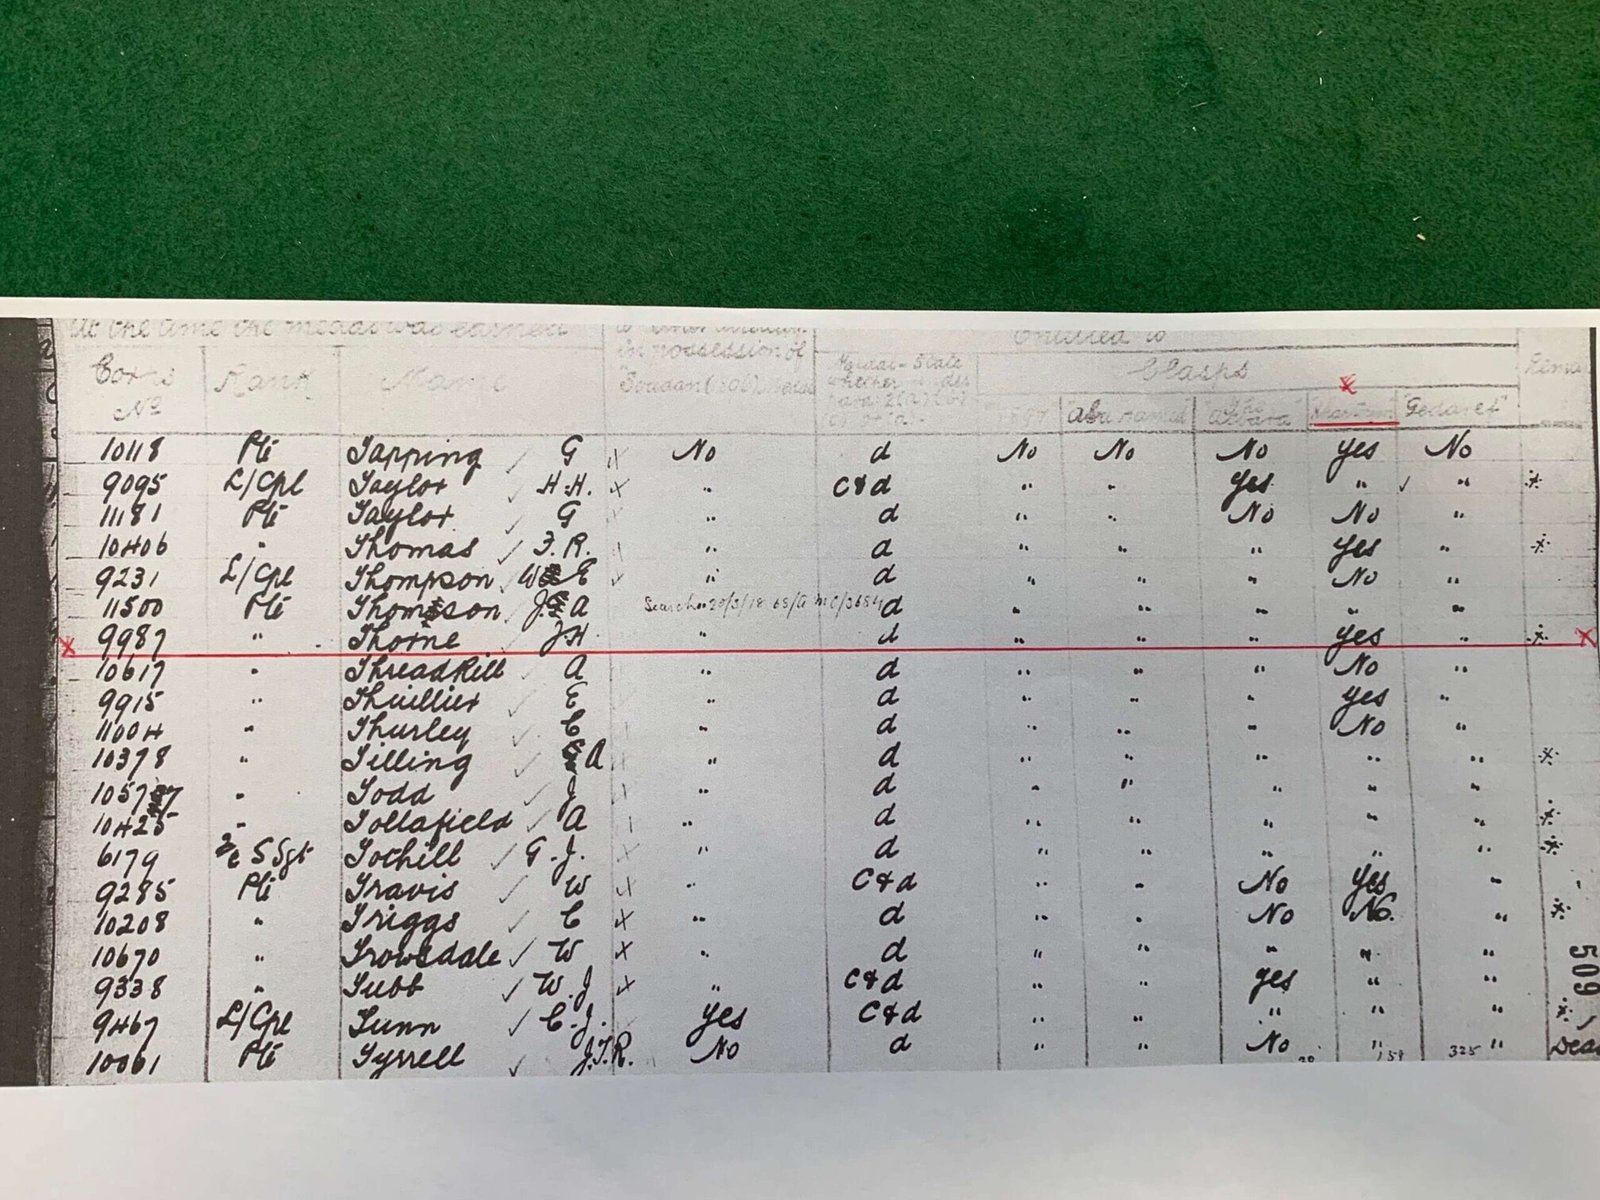 At the time the medal was earned
in possession of Entitled to
Corps Rank Name Soudan Medal Medal-State Clasps Rema
No whether under
para 2(a)(b)
1897 Abu Hamed The Atbara Khartoum "Gedaref"
10118 Pte Tapping G No d No No No yes No
9095 L/Cpl Taylor H.H. " C&d " " yes " "
11181 Pte Taylor G " d " " No No "
10406 " Thomas F.R. " d " " " yes "
9231 L/Cpl Thompson W E " d " " " No "
11500 Pte Thomsson J. A Search 29/3/18 68/A MC/3684 d " " " " "
9987 " Thorne J.H " d " " " yes "
10617 " Threadkill A " d " " " No "
9915 " Thuillier E " d " " " yes "
11004 " Thurley C " d " " " No "
10378 " Tilling A " d " " " " "
1057 7 " Todd J " d " " " " "
10425 " Tollafield A " d " " " " "
6179 S Sgt Tothill G.J. " d " " " " "
9285 Pte Travis W " C&d " " No yes "
10208 " Triggs C " d " " No No. "
10670 " Trowsdale W " d " " " " "
9338 " Tubb W.J " C&d " " yes " "
9467 L/Cpl Tunn C.J. yes C&d " " " " "
10061 Pte Tyrrell J.T.R. No d " " No " 325 " Dead
509